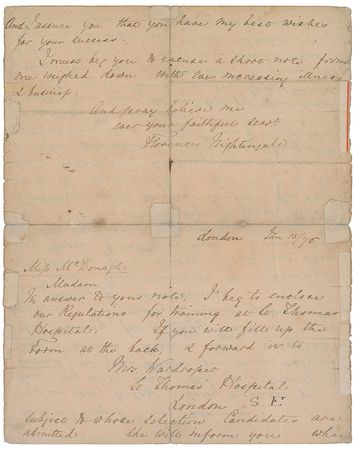 And assure you that you have my best wishes
for your success.
I must beg you to excuse a short note from
one weighed down with ever increasing illness
& business.
And pray believe me
ever your faithful servt.
Florence Nightingale
London Jan 15/76
Miss McDonagh
Madam
In answer to your note, I beg to enclose
our Regulations for training at St. Thomas
Hospital: If you will fill up the
Form at the back, & forward it to
Mrs. Wardroper
St Thomas' Hospital
London S.E
subject to whose selection Candidates are
admitted: she will inform you when